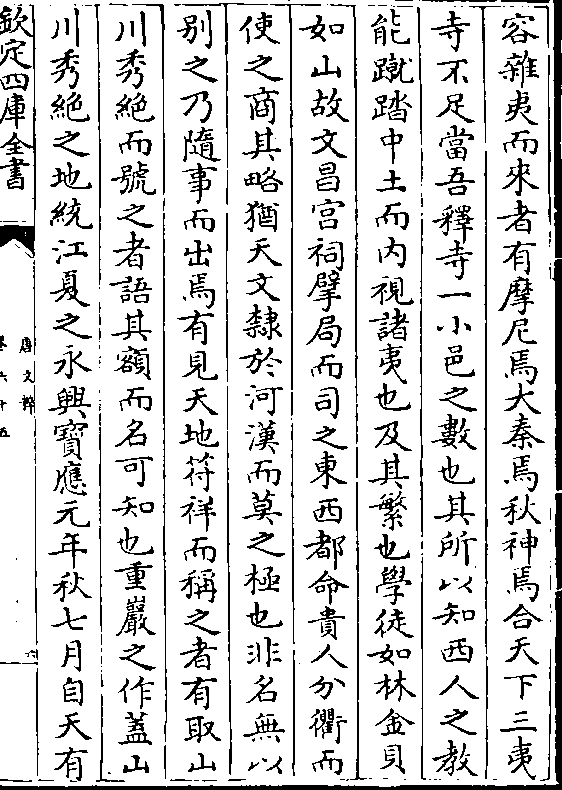 容雜夷而來者有摩尼焉大秦焉秋神焉合天下三夷
寺不足當吾釋寺一小邑之數也其所以知西人之教
能蹴踏中土而内視諸夷也及其繁也學徒如林金貝
如山故文昌宫祠擘局而司之東西都命貴人分衢而
使之商其略猶天文隸於河漢而莫之極也非名無以
别之乃隨事而出焉有見天地符祥而稱之者有取山
川秀絶而號之者語其額而名可知也重巖之作蓋山
川秀絶之地統江夏之永興寶應元年秋七月自天有
欽定四庫全書
唐文粹
卷六十五
六